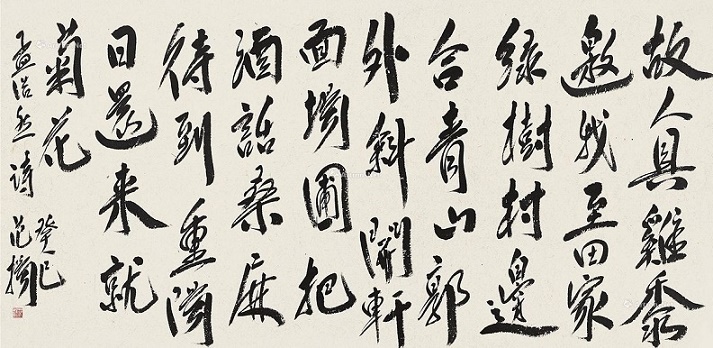 故人具雞黍
邀我至田家
綠樹村邊
合青山郭
外斜開軒
面場圃把
酒話桑麻
待到重陽
日還來就
菊花
孟浩然詩
癸巳
范揚